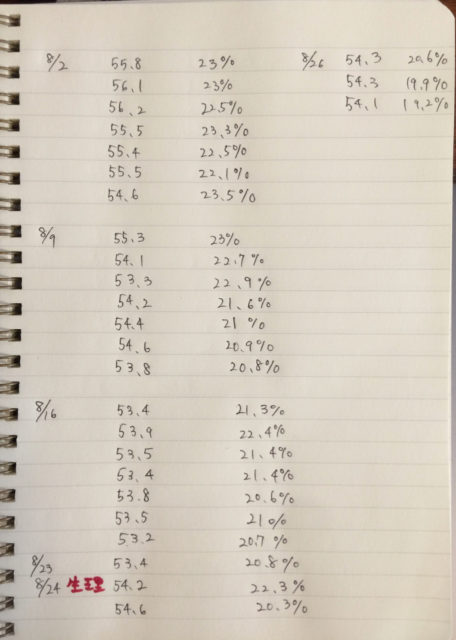 8/2 55.8 23%
56.1 23%
56.2 22.5%
55.5 23.3%
55.4 22.5%
55.5 22.1%
54.6 23.5%
8/9 55.3 23%
54.1 22.7%
53.3 22.9%
54.2 21.6%
54.4 21%
54.6 20.9%
53.8 20.8%
8/16 53.4 21.3%
53.9 22.4%
53.5 21.4%
53.4 21.4%
53.8 20.6%
53.5 21%
53.2 20.7%
8/23 53.4 20.8%
8/24 生理 54.2 22.3%
54.6 20.3%
8/26 54.3 20.6%
54.3 19.9%
54.1 19.2%